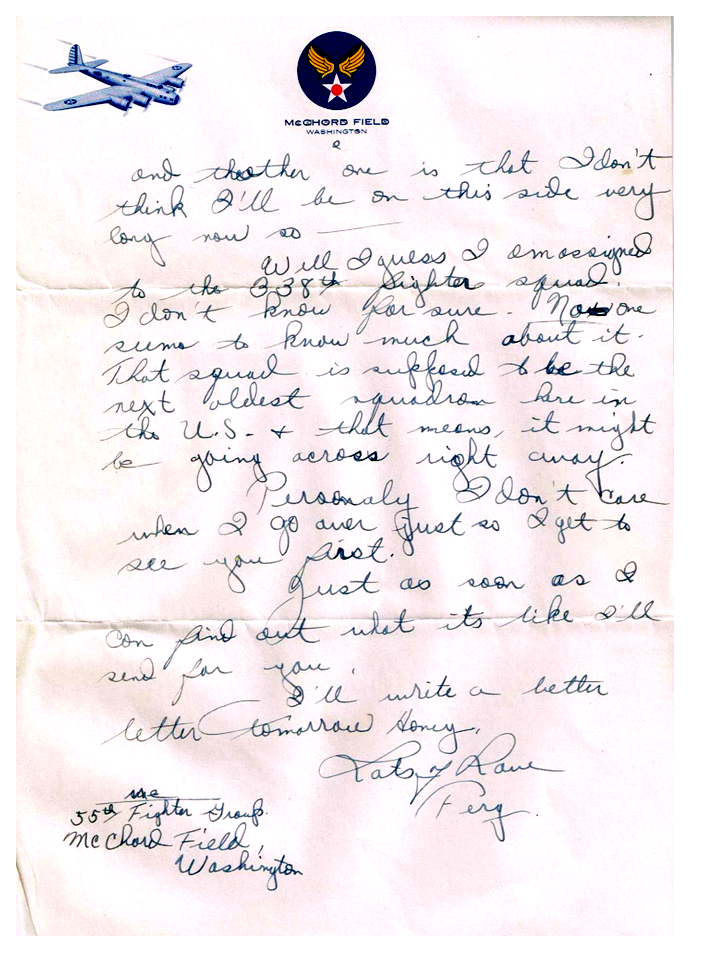 McCHORD FIELD
WASHINGTON
2
and the other one is that I don't
think I'll be on this side very
long now so ———
Will I guess I am assigned
to the 338th fighter squad.
I don't know for sure. No one
sums to know much about it.
That squad is supposed to be the
next oldest squadron here in
the U.S. & that means, it might
be going across right away.
Personaly I don't care
when I go over just so I get to
see you first.
Just as soon as I
can find out what its like I'll
send for you.
I'll write a better
letter tomorrow Honey.
Lots of Love
Ferg.
me
55th Fighter Group.
McChord Field,
Washington